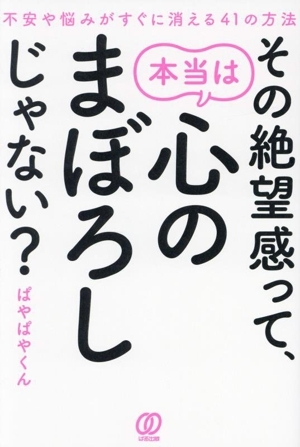 不安や悩みがすぐに消える41の方法
その絶望感って、
本当は
心の
まぼろし
じゃない?
ぱやぱやくん
ぱる出版